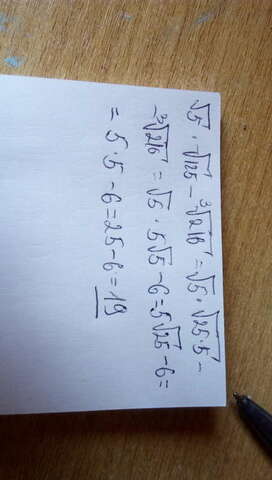 √5 · √125 - ∛216 = √5 · √25·5 -
- ∛216 = √5 · 5√5 - 6 = 5√25 - 6 =
= 5 · 5 - 6 = 25 - 6 = 19